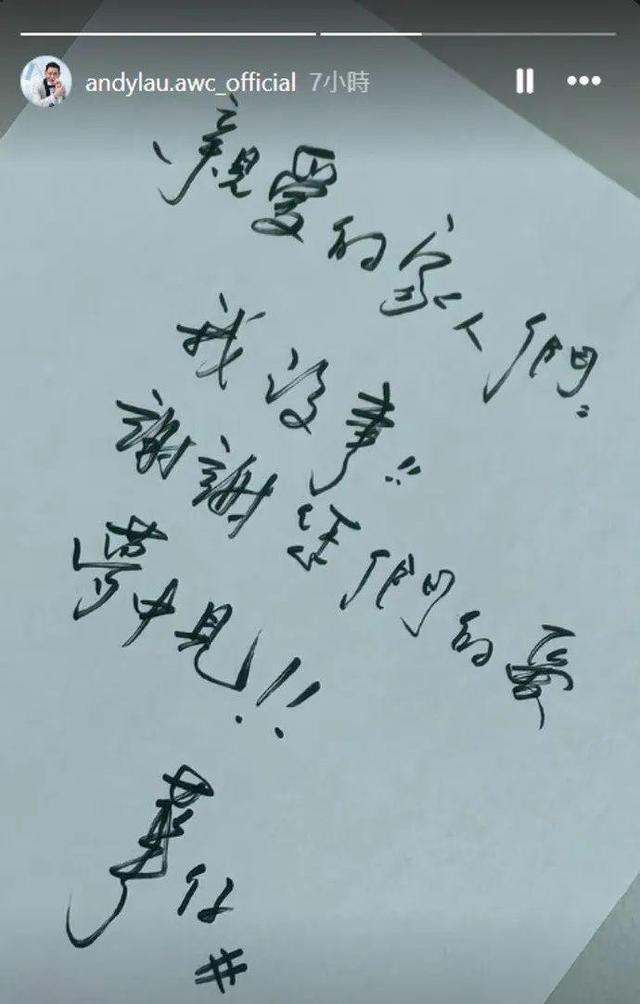 andylau.awc_official 7小時
親愛的家人們:
我沒事!!
謝謝你們的愛
夢中見!!
華仔
#